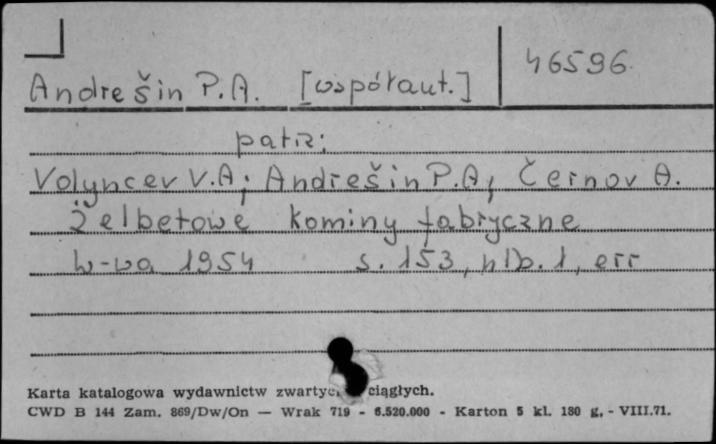 Andrešin P.A. [współaut.] 46596
patrz:
Volyncev V.A; Andrešin P.A, Černov A.
Żelbetowe kominy fabryczne
W-wa 1954 s. 153, nlb. 1, err
Karta katalogowa wydawnictw ciągłych.
CWD B 144 Zam. 869/Dw/On — Wrak 719 - 6.520.000 - Karton 5 kl. 180 g. - VIII.71.